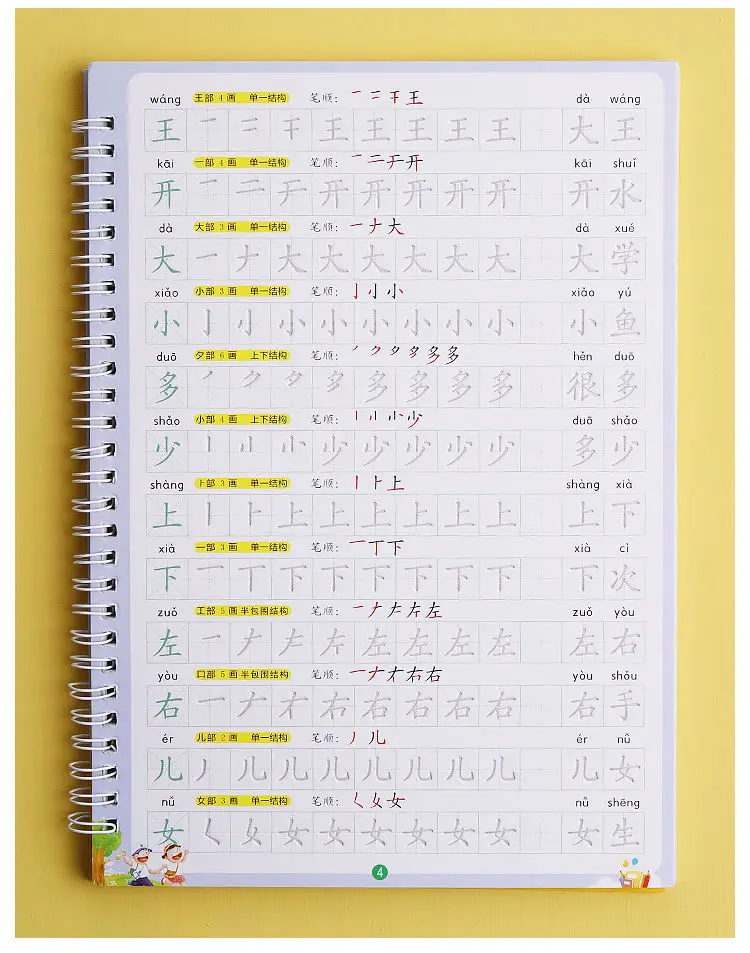 wáng 王部 4 画 单一结构 笔顺: 一 二 干 王 dà wáng
王 一 二 干 王 王 王 王 王 大 王
kāi 一部 4 画 单一结构 笔顺: 一 二 开 开 kāi shuǐ
开 一 二 开 开 开 开 开 开 开 水
dà 大部 3 画 单一结构 笔顺: 一 ナ 大 dà xué
大 一 ナ 大 大 大 大 大 大 大 学
xiǎo 小部 3 画 单一结构 笔顺: 亅 小 小 xiǎo yú
小 亅 小 小 小 小 小 小 小 小 鱼
duō 夕部 6 画 上下结构 笔顺: 丿 ク 夕 多 多 多 hěn duō
多 丿 ク 夕 多 多 多 多 多 很 多
shǎo 小部 4 画 上下结构 笔顺: 丨 小 小 少 duō shǎo
少 丨 小 小 少 少 少 少 少 多 少
shàng 卜部 3 画 单一结构 笔顺: 丨 卜 上 shàng xià
上 丨 卜 上 上 上 上 上 上 上 下
xià 一部 3 画 单一结构 笔顺: 一 丅 下 xià cì
下 一 丅 下 下 下 下 下 下 下 次
zuǒ 工部 5 画 半包围结构 笔顺: 一 ナ 左 左 左 zuǒ yòu
左 一 ナ 左 左 左 左 左 左 左 右
yòu 口部 5 画 半包围结构 笔顺: 一 ナ 右 右 右 yòu shǒu
右 一 ナ 右 右 右 右 右 右 右 手
ér 儿部 2 画 单一结构 笔顺: 丿 儿 ér nǚ
儿 丿 儿 儿 儿 儿 儿 儿 儿 儿 女
nǚ 女部 3 画 单一结构 笔顺: く 女 女 nǚ shēng
女 く 女 女 女 女 女 女 女 女 生
4